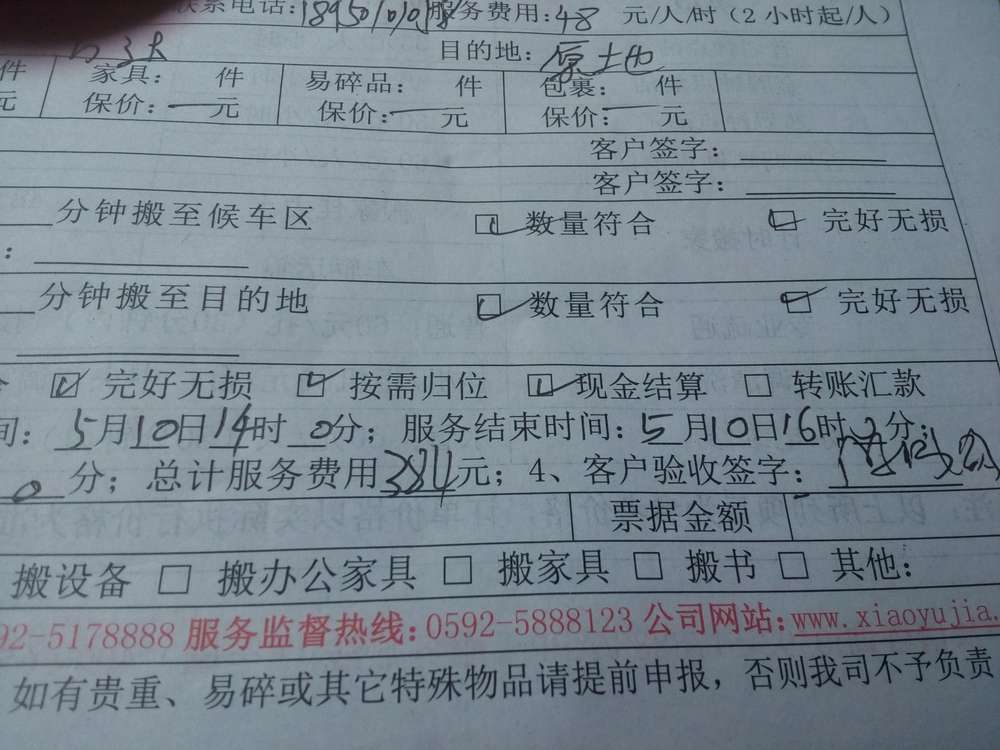 联系电话:18950101 服务费用:48 元/人/时（2 小时起/人）
目的地: 原土地
件 家具: 件 易碎品: 件 包裹: 件
元 保价:—元 保价:—元 保价:—元
客户签字:
客户签字:
分钟搬至候车区 ☑ 数量符合 ☑ 完好无损
:
分钟搬至目的地 ☑ 数量符合 ☑ 完好无损
☑ 完好无损 ☑ 按需归位 ☑ 现金结算 □ 转账汇款
间: 5月10日14时 0分; 服务结束时间: 5月10日16时 分;
0 分; 总计服务费用384元; 4、客户验收签字:
票据金额
搬设备 □ 搬办公家具 □ 搬家具 □ 搬书 □ 其他:
92-5178888 服务监督热线: 0592-5888123 公司网站: www.xiaoyujia.
如有贵重、易碎或其它特殊物品请提前申报，否则我司不予负责